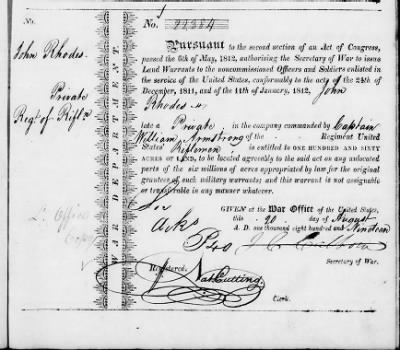 No.
John Rhodes.
Private
Regt of Rifle
WAR DEPARTMENT.
No. 22384
Pursuant to the second section of an Act of Congress,
passed the 6th of May, 1812, authorizing the Secretary of War to issue
Land Warrants to the noncommissioned Officers and Soldiers enlisted in
the service of the United States, conformably to the acts of the 24th of
December, 1811, and of the 11th of January, 1812, John
Rhodes
late a Private in the company commanded by Captain
William Armstrong of the Regiment United
States' Riflemen is ENTITLED TO ONE HUNDRED AND SIXTY
ACRES OF LAND, to be located agreeably to the said act on any unlocated
parts of the six millions of acres appropriated by law for the original
grantees of such military warrants; and this warrant is not assignable
or transferable in any manner whatever.
GIVEN at the War Office of the United States,
this 20 day of August
A. D. one thousand eight hundred and Nineteen
Secretary of War.
Registered, Nat Cutting.
Clerk.